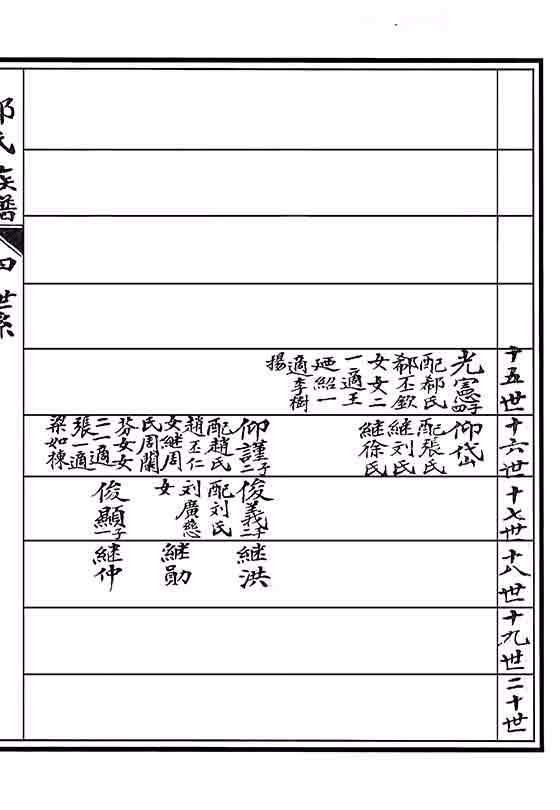 十五世
光憲子四
配郗氏
郗丕欽
女女二
一適王
廼紹一
適李樹
揚
十六世
仰岱
配張氏
継刘氏
継徐氏
仰謹子二
配趙氏
趙丕仁
女継周
氏周蘭
芬女女
二一適
張一適
梁如棟
十七世
俊義子二
配刘氏
刘廣慈
女
俊顯子一
十八世
継洪
継勛
継仲
十九世
二十世
氏族譜
四
世系